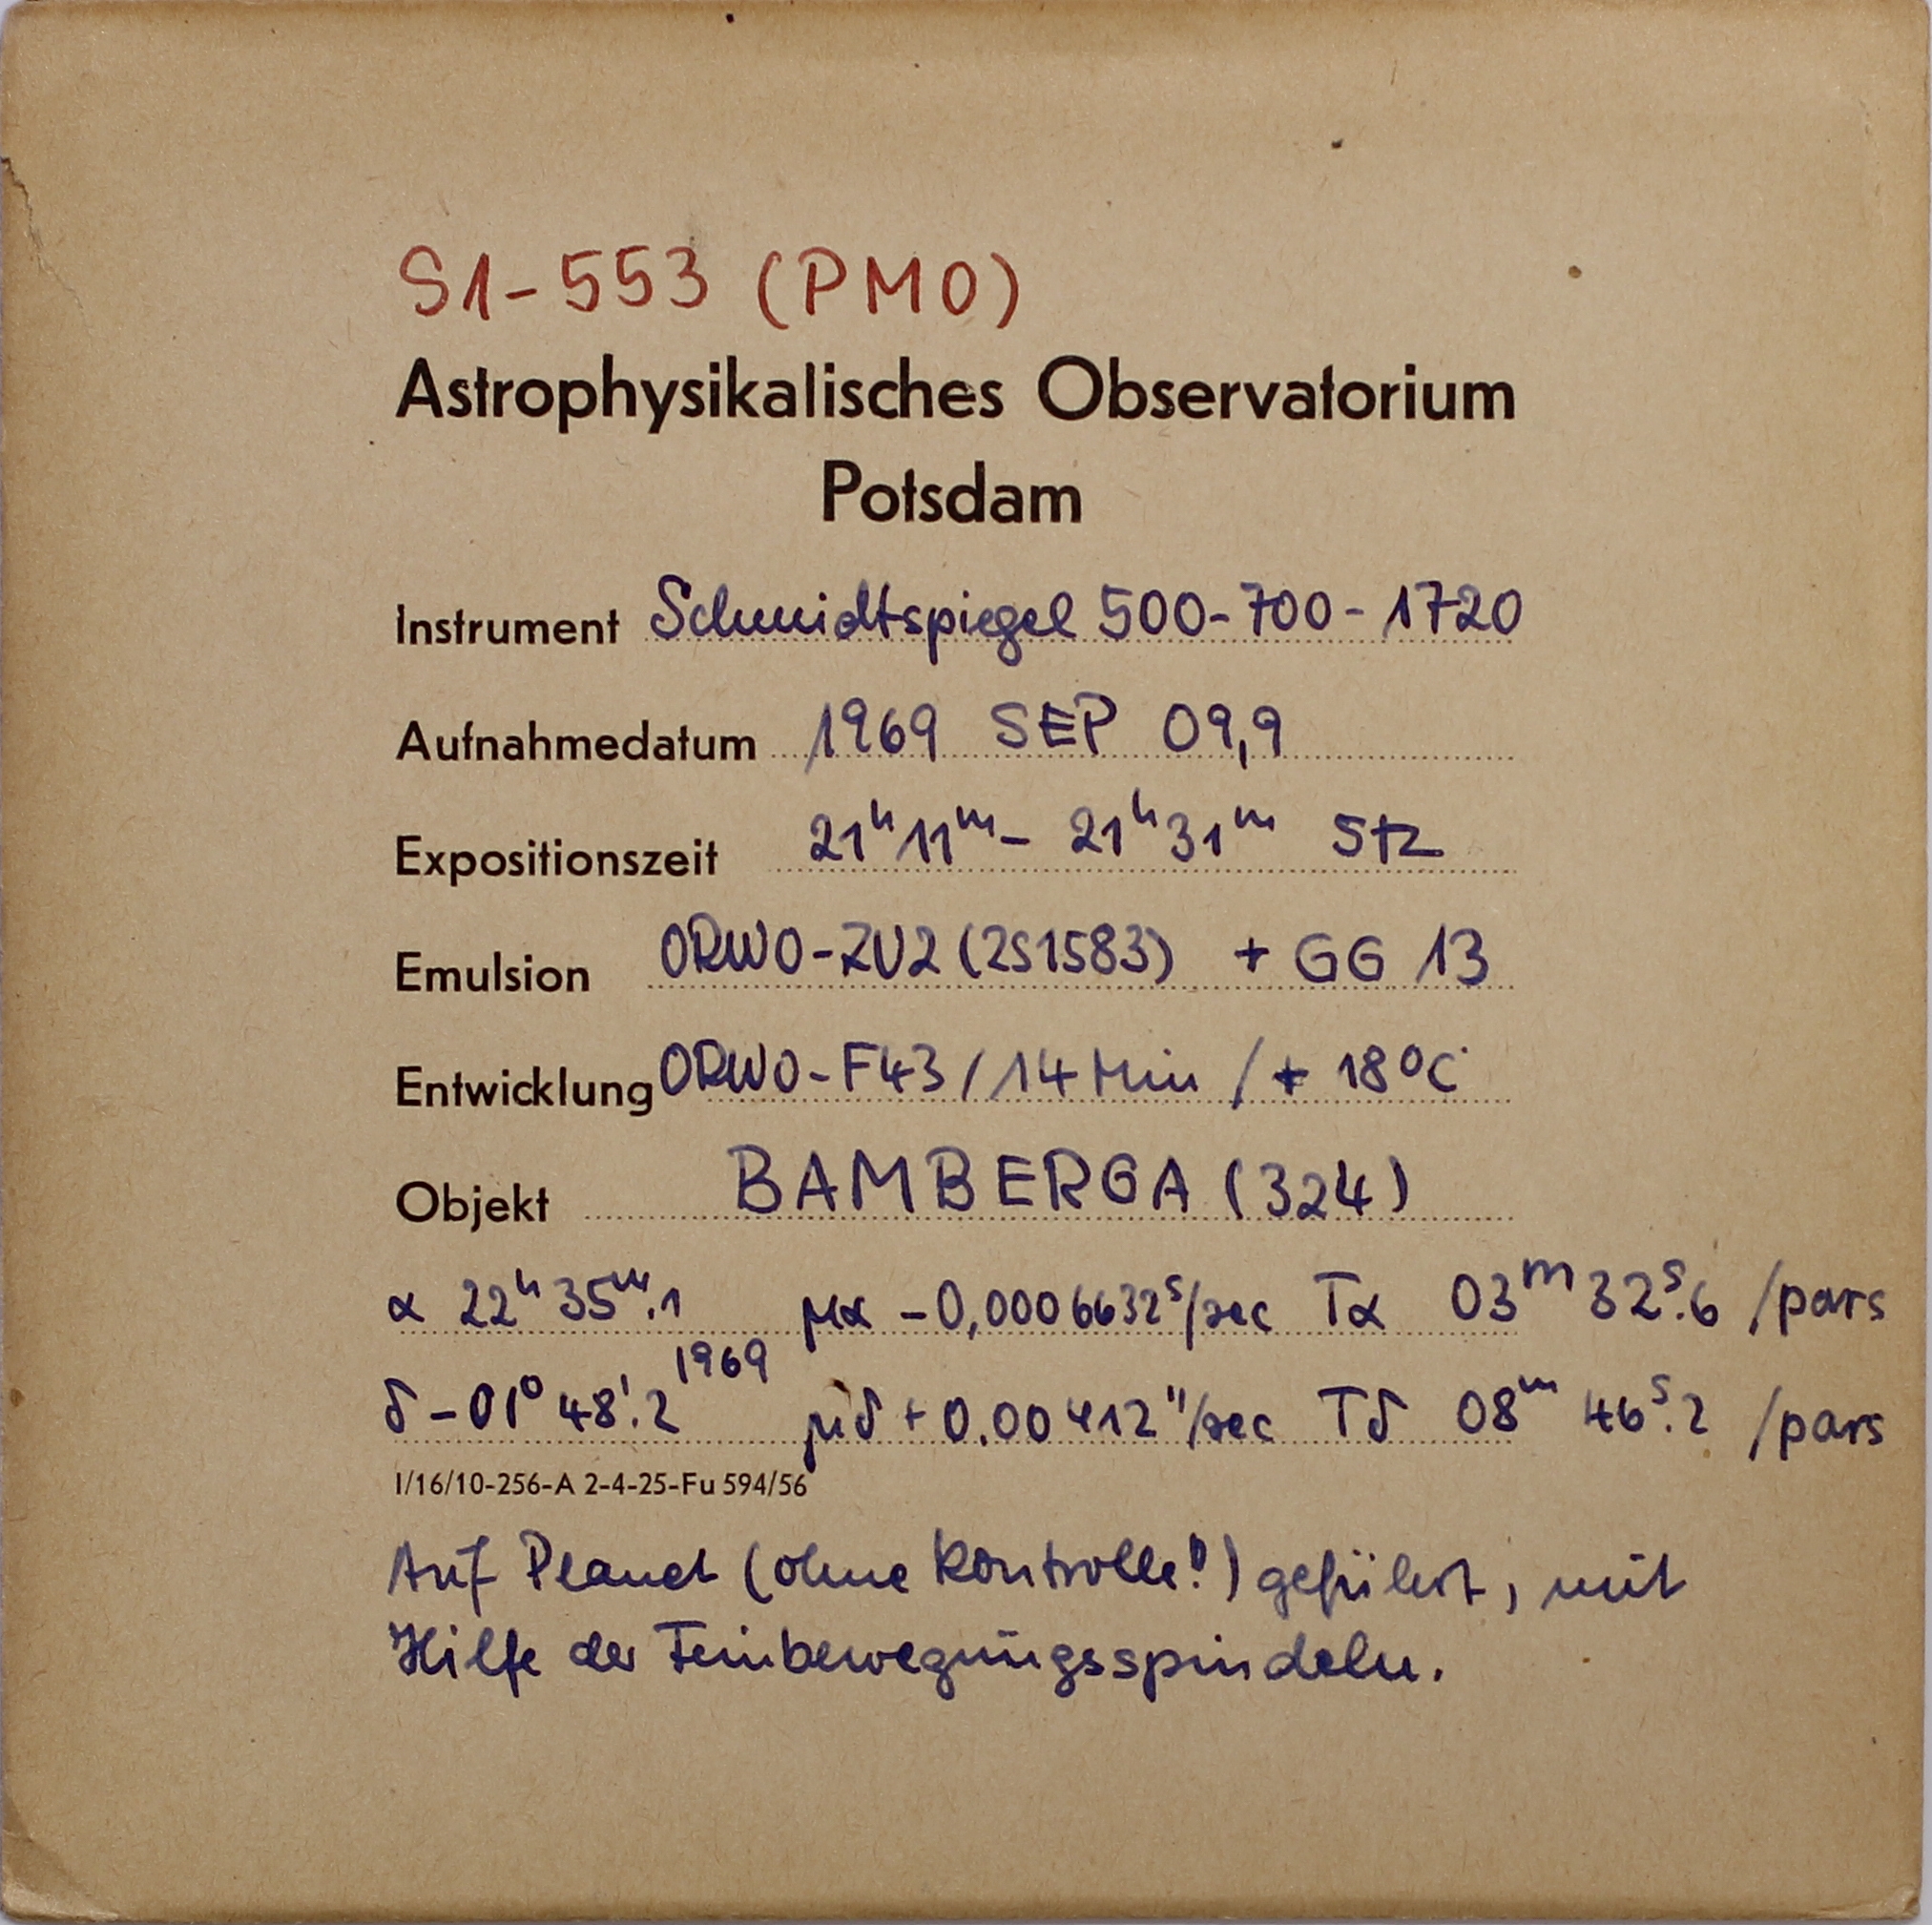 S1-553 (PMO)
Astrophysikalisches Observatorium
Potsdam
Instrument Schmidtspiegel 500-700-1720
Aufnahmedatum 1969 SEP 09,9
Expositionszeit 21ʰ11ᵐ- 21ʰ31ᵐ Stz
Emulsion ORWO-ZU2 (2S1583) + GG 13
Entwicklung ORWO-F43 / 14 Min / + 18°C
Objekt BAMBERGA (324)
α 22ʰ 35ᵐ.1 μα -0,0006632ˢ/sec Tα 03ᵐ 32ˢ.6 /pars
δ -01° 48'.2 1969 μδ +0.00412"/sec Tδ 08ᵐ 46ˢ.2 /pars
I/16/10-256-A 2-4-25-Fu 594/56
Auf Planet (ohne Kontrolle!) geführt, mit
Hilfe der Feinbewegungsspindeln.